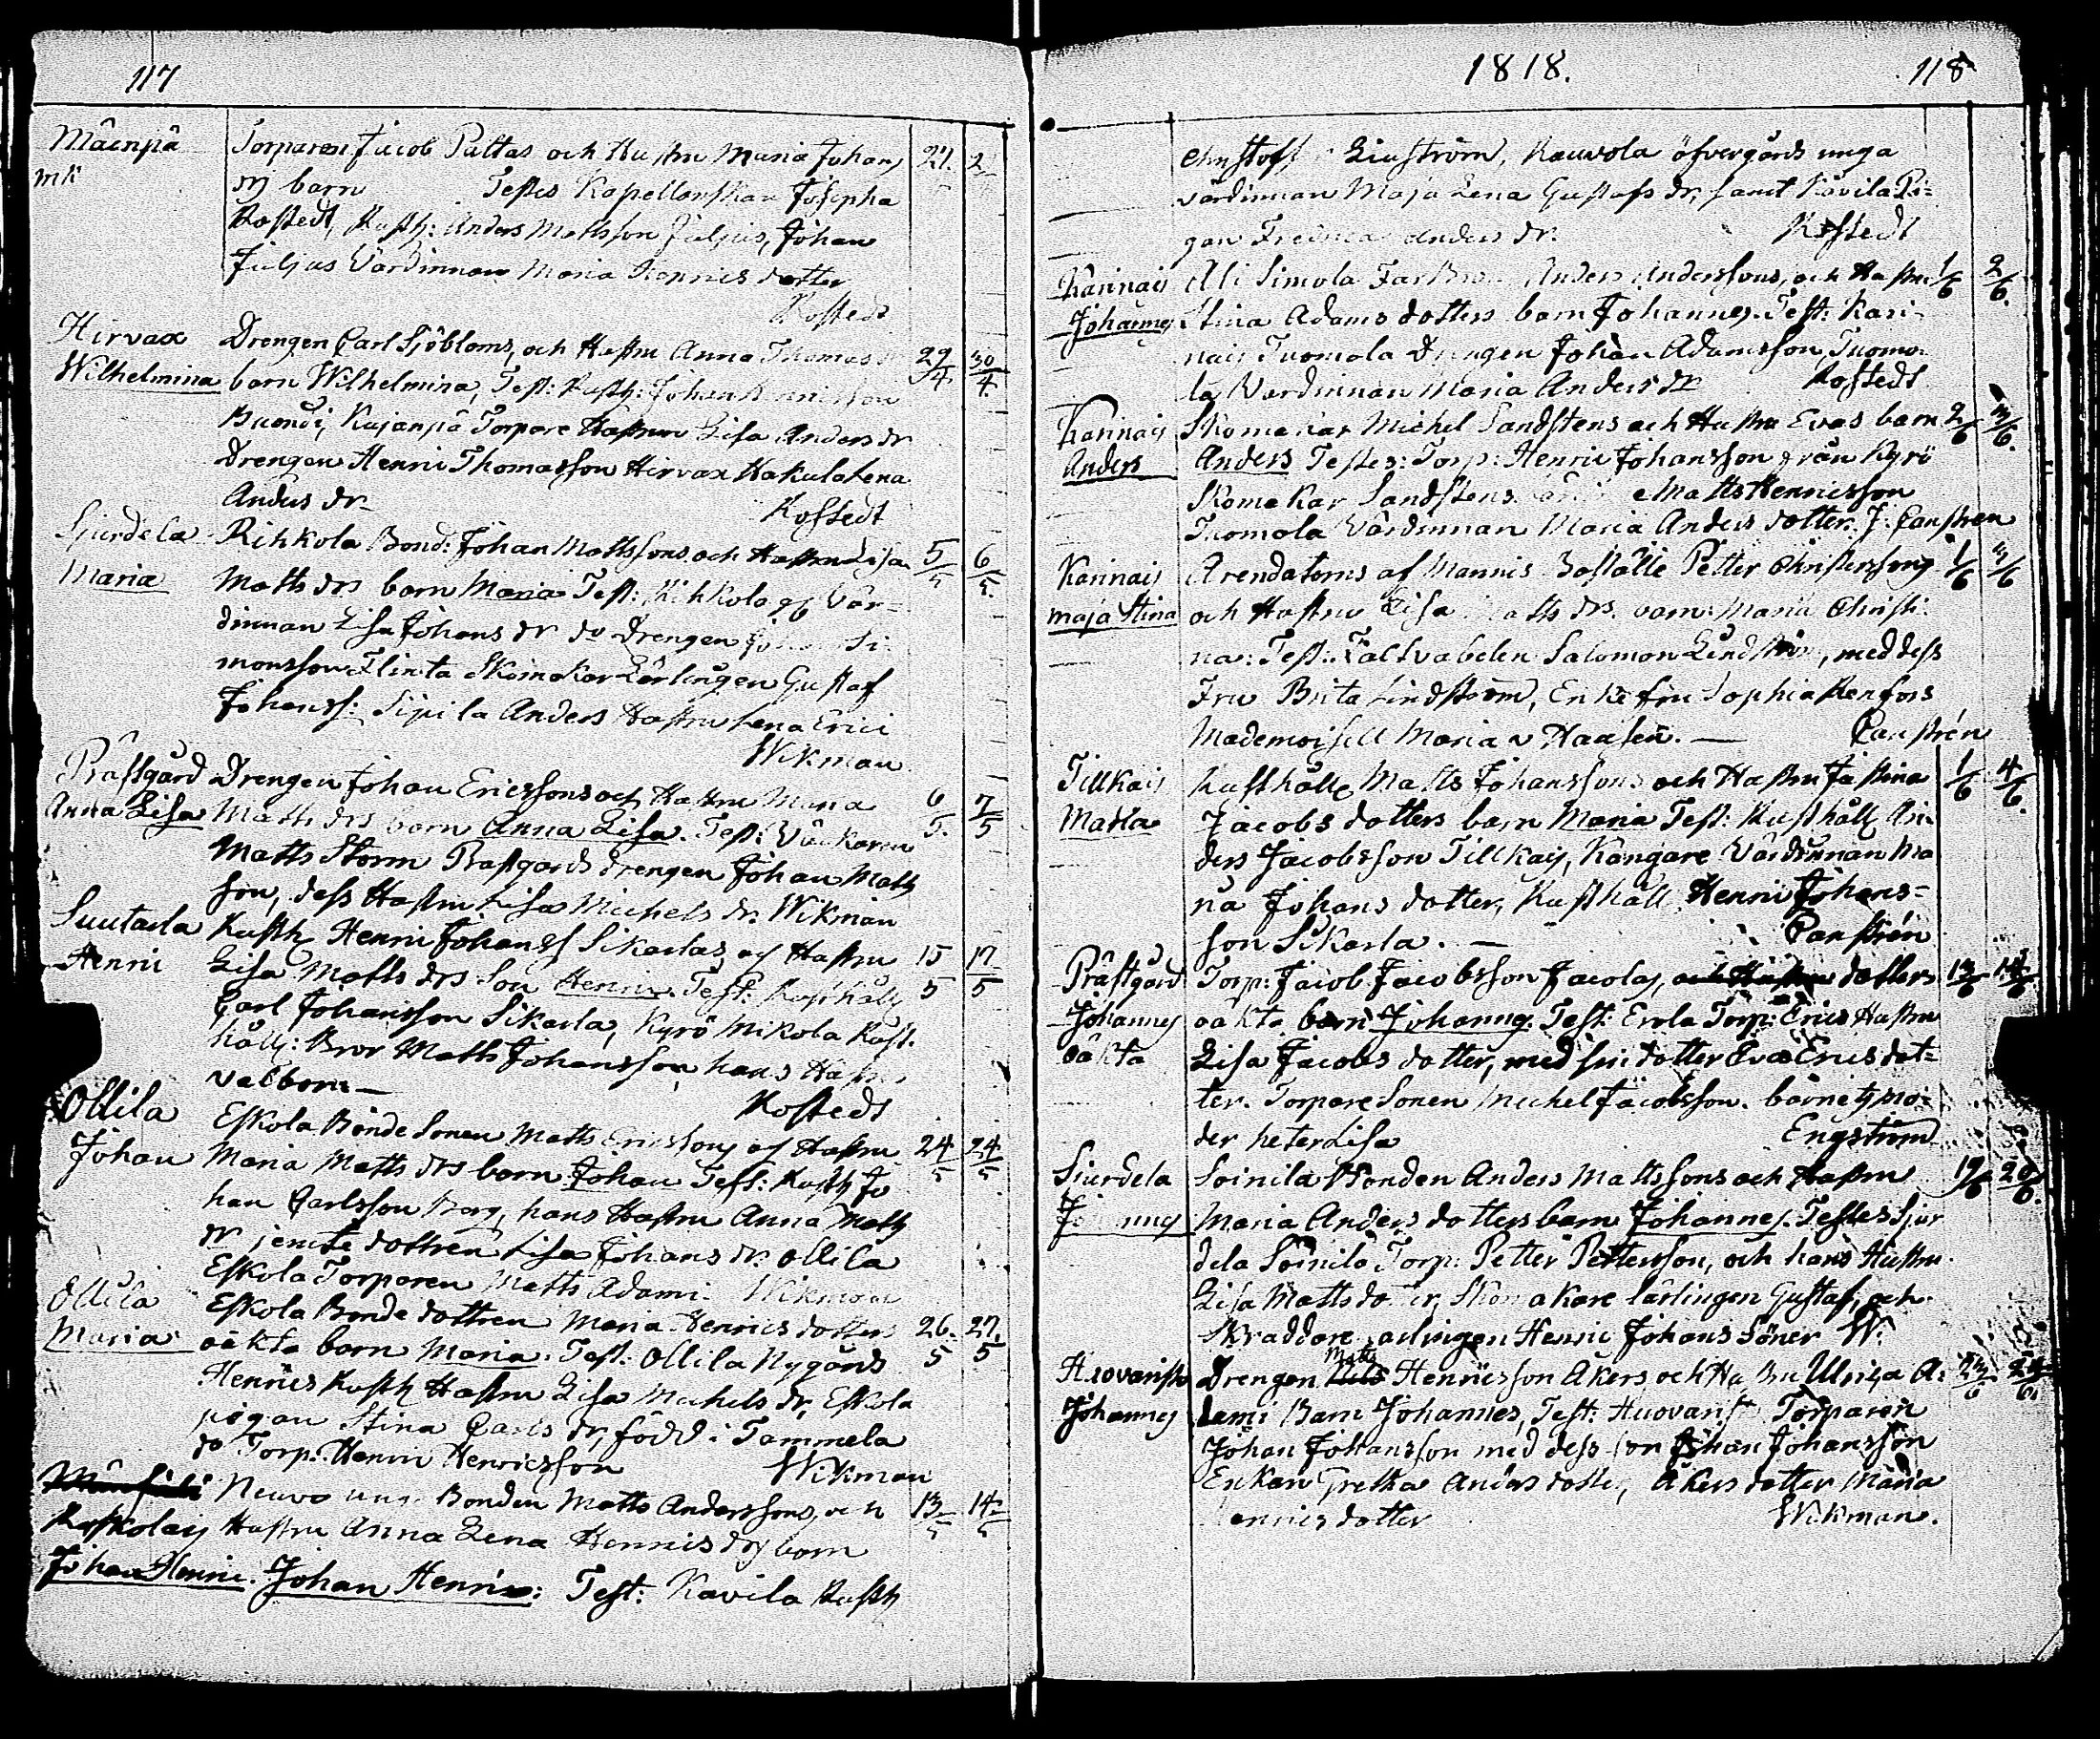 117
Mäenpä Torparen Jacob Pultas och Hustru Maria Johans 27. 2
mk drs barn Testes Kapellanskan Josepha
Rostedt, Rusth: Anders Mattsson Juljus, Johan
Juljus Värdinnan Maria Henrics dotter
Rostedt
Hirvax Drengen Carl Sjöbloms, och Hustru Anna Thomas 29/4. 30/4.
Wilhelmina barn Wilhelmina, Test: Rusth: Johan
Kujanpä Torpare Hustrun Lisa Anders dr
Drengen Henric Thomasson Hirvax Hakula Lena
Anders dr Rostedt
Sjurdela Rihkola Bond: Johan Mattssons och Hustru Lisa 5/5 6/5.
Maria Matts drs barn Maria Test: Rihkola Vär-
dinnan Lisa Johans dr do Drengen Si-
monsson Flinta Skomakar Lärlingen Gustaf
Johanss: Sipila Anders Hustru Lena Erici
Wikman
Prästgård Drengen Johan Ericssons och Hustru Maria 6/5. 7/5
Anna Lisa Matts drs barn Anna Lisa. Test: Väckaren
Matts Storm Prästgårds drengen Johan Matts
son, dess Hustru Lisa Michels dr. Wikman
Suutarla Rusth Henric Johanss Sikarlas och Hustru 15/5 17/5
Henric Lisa Matts drs Son Henric. Test: Rusthåll
Carl Johansson Sikarla, Kyrö Mikola Rust-
håll: Bror Matts Johansson, hans Hustru
Valborg — Rostedt
Ollila Eskola Bonde Sonen Matts Ericssons och Hustru 24/5 24/5
Johan Maria Matts drs barn Johan Test: Rusth Jo
han Carlsson Borg, hans Hustru Anna Matts
dr jemte dottren Lisa Johans dr. Ollila
Eskola Torparen Matts Adami. Wikman
Ollila Eskola Bonde dottren Maria Henrics dotters 26./5 27./5
Maria oäkta barn Maria. Test: Ollila Nygårds
Henrics Rusth Hustru Lisa Michels dr, Eskola
pigan Stina Carls dr, född i Tammela
do Torp: Henric Henricsson Wikman
Neuvo Bonden Matts Anderssons, och 13/5 14/5
Hustru Anna Lena Henrics drs barn
Johan Henric. Johan Henric: Test: Kavila Rusth
1818. 118
Liuström, Kauvola öfvergårds unga
värdinnan Maja Lena Gustafs dr, samt Kåvila Pi-
gan Fredrica Anders dr. Rostedt
Karinais Ali Simola Anders Anderssons, och Hustru 1/6 2/6.
Johannes Stina Adams dotters barn Johannes. Test: Kari-
nais Tuomola Drengen Johan Adamsson, Tuomo-
la Värdinnan Maria Anders dr Rostedt
Karinais Skomakar Michel Sandstens och Hustru Evas barn 2/6 3/6.
Anders Anders Testes: Torp: Henric Johansson från Kyrö
Skomakar Sandstens Matts Henricsson
Tuomola Värdinnan Maria Anders dotter. J: Canstrén
Karinais Arendatorns af Mannis Boställe Petter Christerssons 1/6 4/6
Maja Stina och Hustru Lisa Matts drs. barn: Maria Christi-
na: Test: Salomon Lindström, med dess
Fru Brita Lindström, Enke fru Sophia Renfors
Mademoisell Maria v Haasén. — Canstrén
Tillkais Rusthåll Matts Johanssons och Hustru Justina 1/6 4/6.
Maria Jacobs dotters barn Maria Test: Rusthåll An-
ders Jacobsson Tillkais, Kangare Värdinnan Ma
ria Johans dotter, Rusthåll Henric Johans-
son Sikarla. — Canstrén
Prästgård Torp: Jacob Jacobsson Jacolas, och Hustru dotters 13/6 14/6
Johannes oäkta barn Johannes. Test: Erola Torp: Erics Hustru
oäkta Lisa Jacobs dotter, med sin dotter Eva Erics dot-
ter. Torpare Sonen Michel Jacobsson. barnets mo-
der heter Lisa Engström
Siurdela Soinila Bonden Anders Mattssons och Hustru 19/6 20/6.
Johannes Maria Anders dotters barn Johannes. Testes Sjur
dela Soinila Torp: Petter Pettersson, och hans Hustru
Lisa Matts dotter, Skomakare lärlingen Gustaf, och
Skräddare lärlingen Henric Johans söner W.
Huovarista Drengen Matts Henricsson Åkers, och Hustru Ulrica A- 23/6 24/6.
Johannes dami Barn Johannes, Test: Huovarista Torparen
Johan Johansson med dess son Johan Johansson
Enkan Gretha Anders dotter, Åkers dotter Maria
Henrics dotter Wikman.